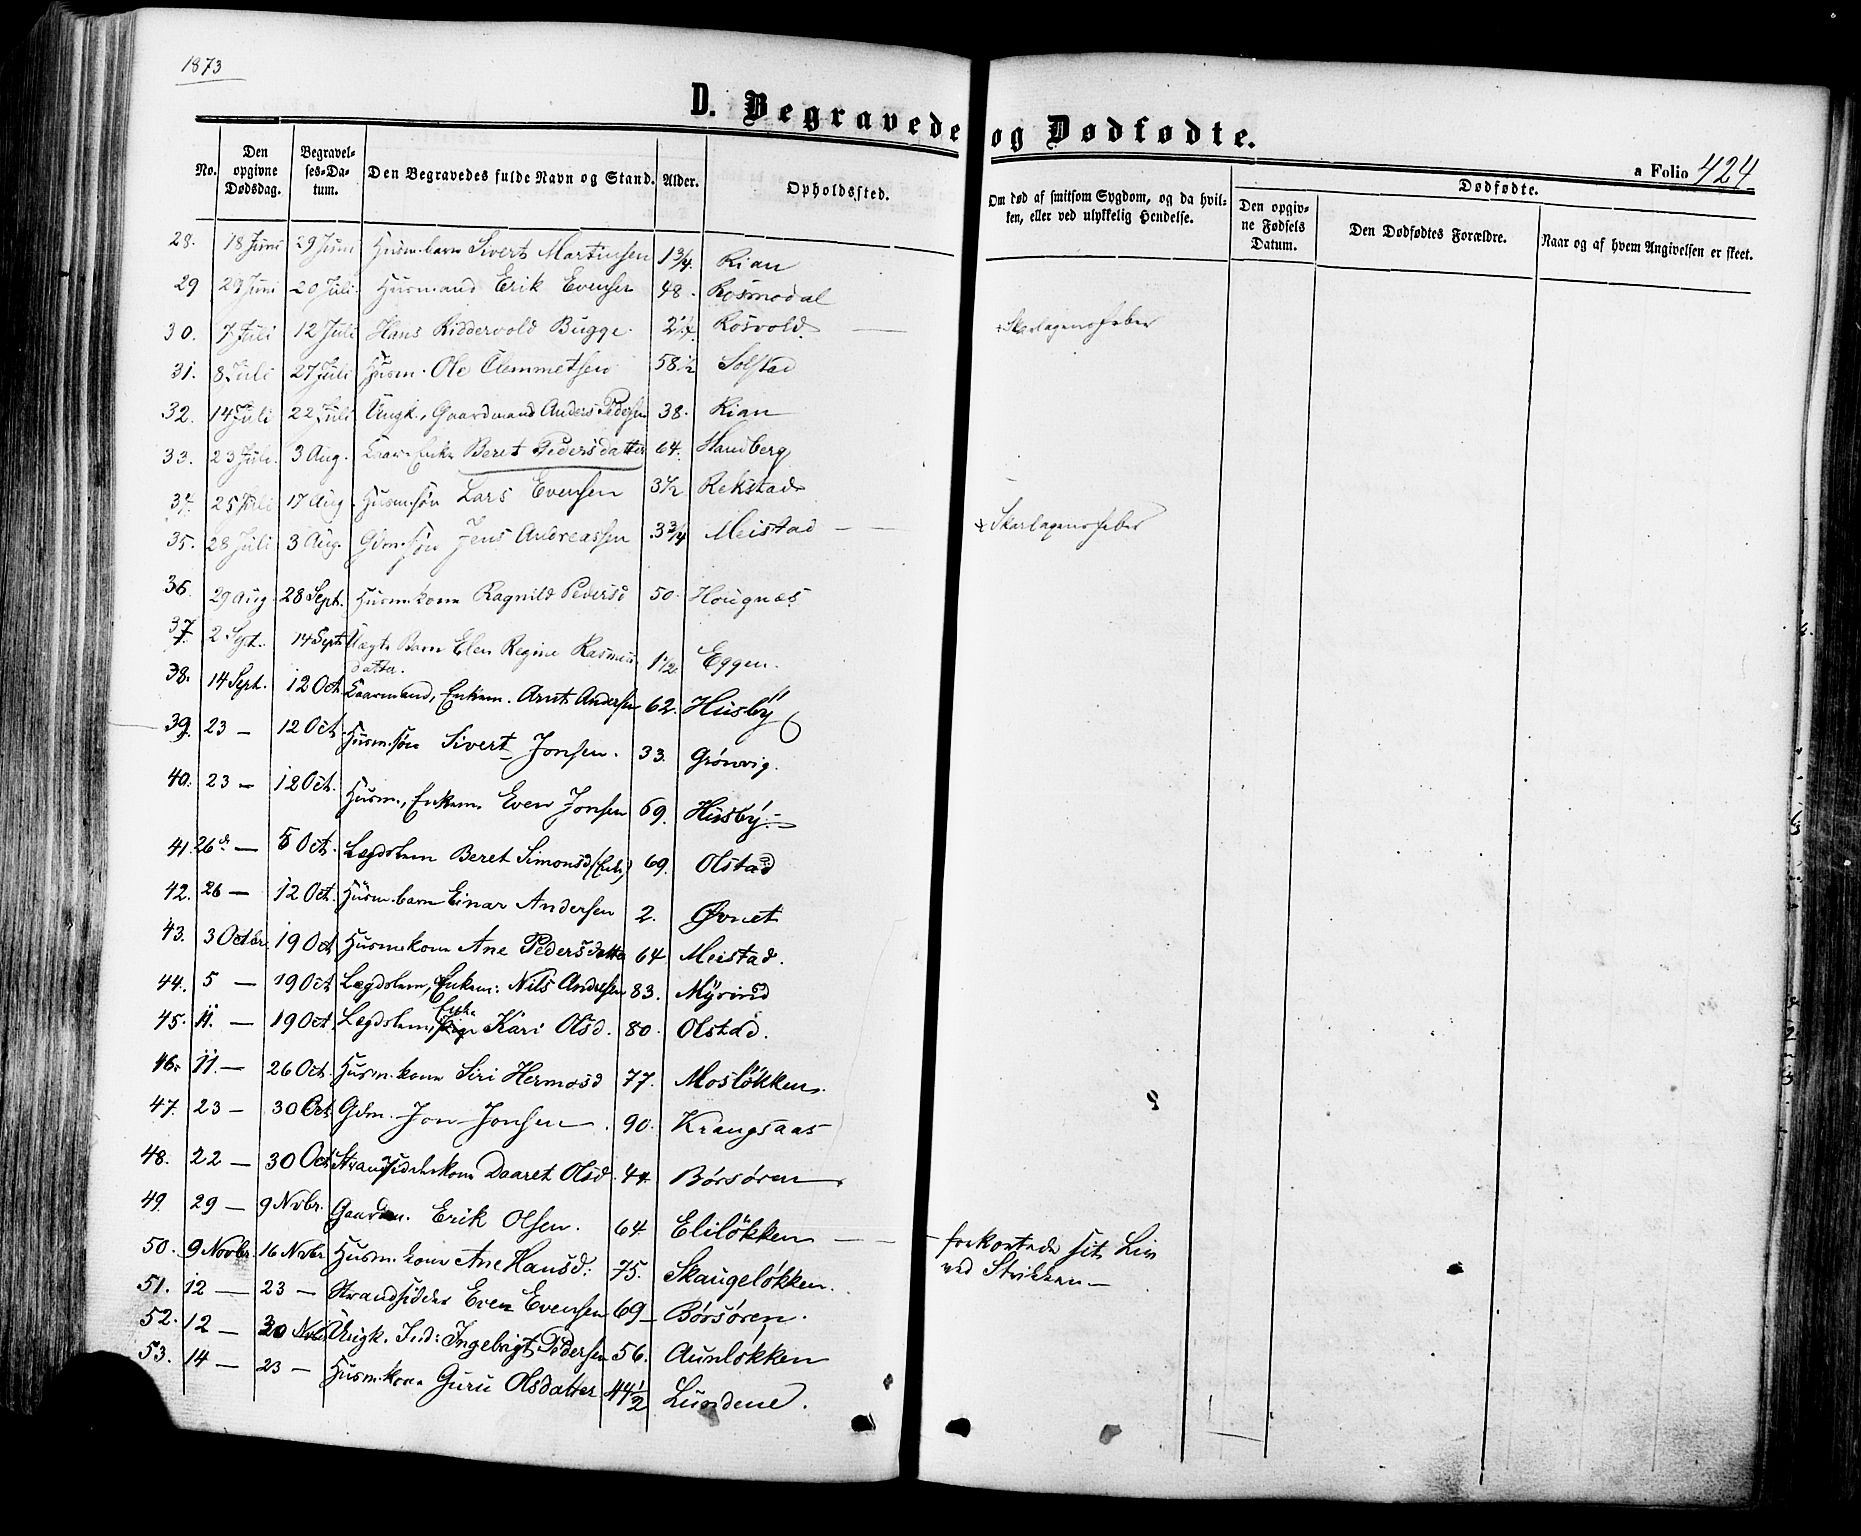 1873
D. Begravede og Dødfødte.
a Folio 424
No. Den opgivne Dødsdag. Begravelses-Datum. Den Begravedes fulde Navn og Stand. Alder. Opholdssted. Om død af smitsom Sygdom, og da hvilken, eller ved ulykkelig Hendelse. Dødfødte. Den opgivne Fødsels Datum. Den Dødfødtes Forældre. Naar og af hvem Angivelsen er skeet.
28. 18 Juni 29 Juni Husm.barn Sivert Martinsen 1 3/4. Rian
29 29 Juni 20 Juli. Husmand Erik Evensen 48. Rosmodal
30. 7 Juli 12 Juli Hans Riddervold Bugge. 2 Rosvold. — Skarlagensfeber
31. 8 Juli 27 Juli Husm. Ole Clemmetsen 58 1/2 Solstad
32. 14 Juli 22 Juli Ungk. Gaardmand Anders Pedersen 38. Rian
33. 23 Juli. 3 Aug. Enke Beret Pedersdatter 64. Handberg
34. 25 Juli 17 Aug. Husm.søn Lars Evensen 3 1/2 Rekstad
35. 28 Juli 3 Aug. Gdm.søn Jens Andreassen .3 3/4 Meistad — — Skarlagensfeber
36. 29 Aug 28 Sept. Husm.kone Ragnild Pedersd 50. Hougnæs
37. 2 Sept. 14 Sept. Barn Elen Regine Rasmus
datter. 1 1/2. Eggen.
38. 14 Sept. 12 Oct. Kaarmand, Enkem. Arnt Andersen 62. Husby
39. 23 — 12 Oct. Husm.søn Sivert Jonsen. 33. Grønvig.
40. 23 — 12 Oct. Husm., Enkem. Even Jonsen 69. Husby. —
41. 26de — 5 Oct. Lægdslem Beret Simonsd (Enke) 69. Olstad
42. 26 — 12 Oct. Husm.barn Einar Andersen 2. Øvnet
43. 3 Octbr. 19 Oct Husm.kone Ane Pedersdatter 64 Meistad.
44. 5 — 19 Oct Lægdslem, Enkem: Nils Andersen 83. Myrind
45. 11. — 19 Oct. Lægdslem, Enke Kari Olsd. 80. Olstad.
46. 11. — 26 Oct. Husm.kone Siri Hermosd 77. Mosløkken.
47. 23 — 30 Oct. Gdm. Jon Jonsen . 90. Krangsaas
48. 22 — 30 Oct Strandsidderkone Daaret Olsd. 44. Børsøren
49. 29 — 9 Nvbr. Gaardm. Erik Olsen. 64. Eliløkken — — forkortede sit Liv
ved Strikken —
50. 9 Novbr. 16 Nvbr. Husm.kone Ane Hansd: 75. Skaugeløkken.
51. 12 — 23 — Strandsidder Even Evensen 69 — Børsøren.
52. 12 — 30 Nvbr Ungk. Ind: Ingebrigt Pedersen 56. Aunløkken
53. 14 — 23 — Husm.kone Guru Olsdatter 44 1/2 Lundene.